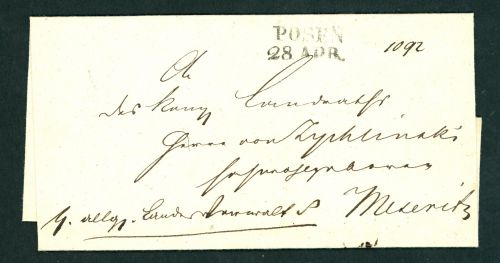 POSEN
28 APR.
1092
An
des König Landraths
Herrn von Zychlinski
Hochwohlgeboren
Meseritz
allg. Landes Verwalt S